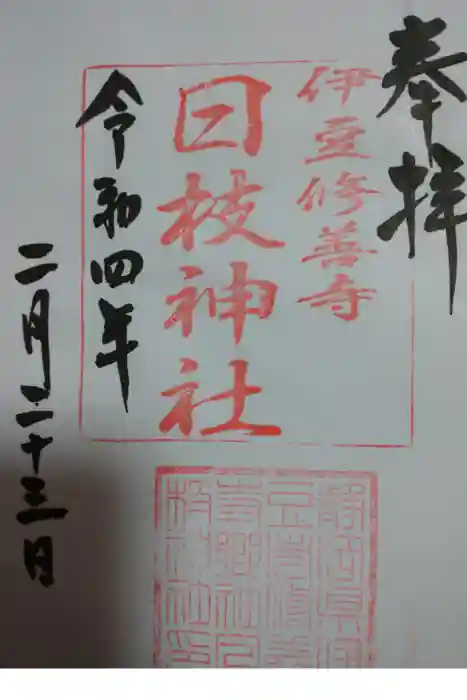 奉拝
伊豆修善寺
日枝神社
令和四年
二月二十三日